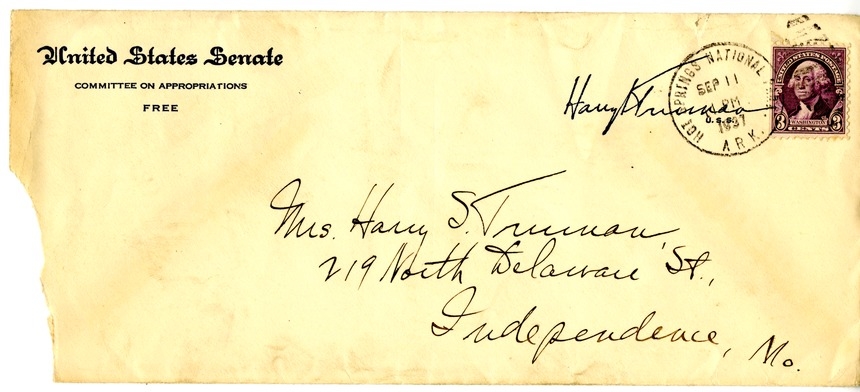 United States Senate
COMMITTEE ON APPROPRIATIONS
FREE
Harry S Truman
U.S.S.
HOT SPRINGS NATIONAL
SEP 11
PM
1937
ARK.
UNITED STATES POSTAGE
WASHINGTON
3 CENTS 3
Mrs. Harry S. Truman
219 North Delaware St.,
Independence, Mo.